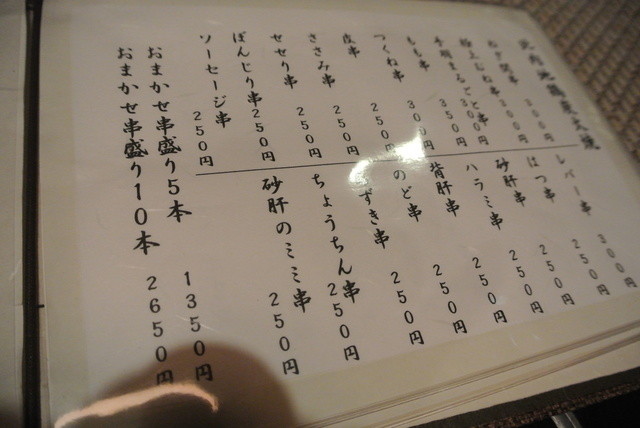 比内地鶏炭火焼
ねぎ間串 300円
極上じね串 300円
手羽まるごと串 350円
もも串 300円
つくね串 250円
皮串 250円
ささみ串 250円
せせり串 250円
ぼんじり串 250円
ソーセージ串 250円
レバー串 300円
はつ串 250円
砂肝串 250円
ハラミ串 250円
背肝串 250円
のど串 250円
ずき串 250円
ちょうちん串 250円
砂肝のミミ串 250円
おまかせ串盛り5本 1350円
おまかせ串盛り10本 2650円